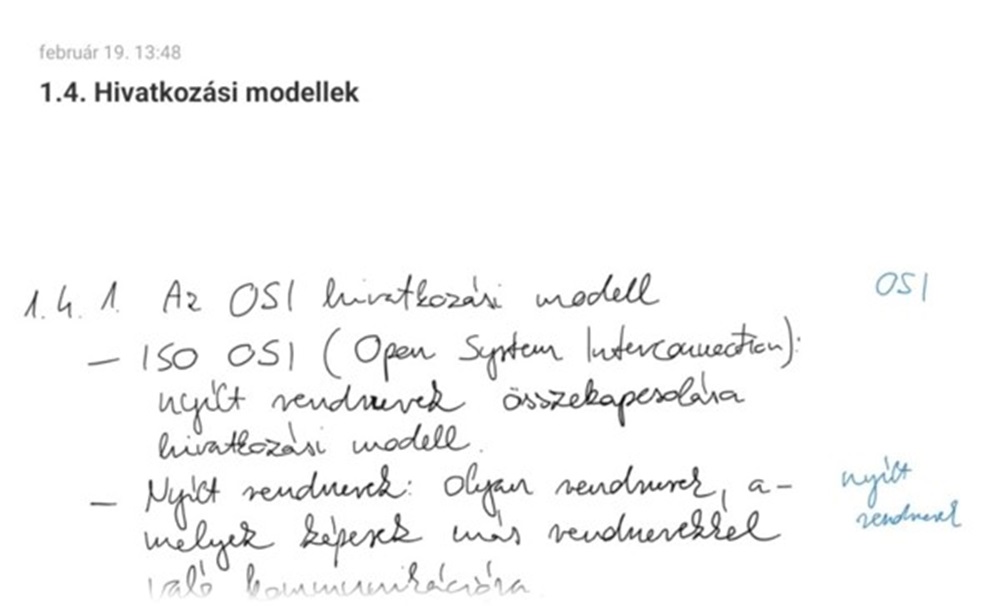 február 19. 13:48
1.4. Hivatkozási modellek
1.4.1. Az OSI hivatkozási modell
OSI
– ISO OSI (Open System Interconnection):
nyílt rendszerek összekapcsolása
hivatkozási modell.
– Nyílt rendszerek: olyan rendszerek, a-
nyílt
rendszerek
melyek képesek más rendszerekkel
való kommunikációra